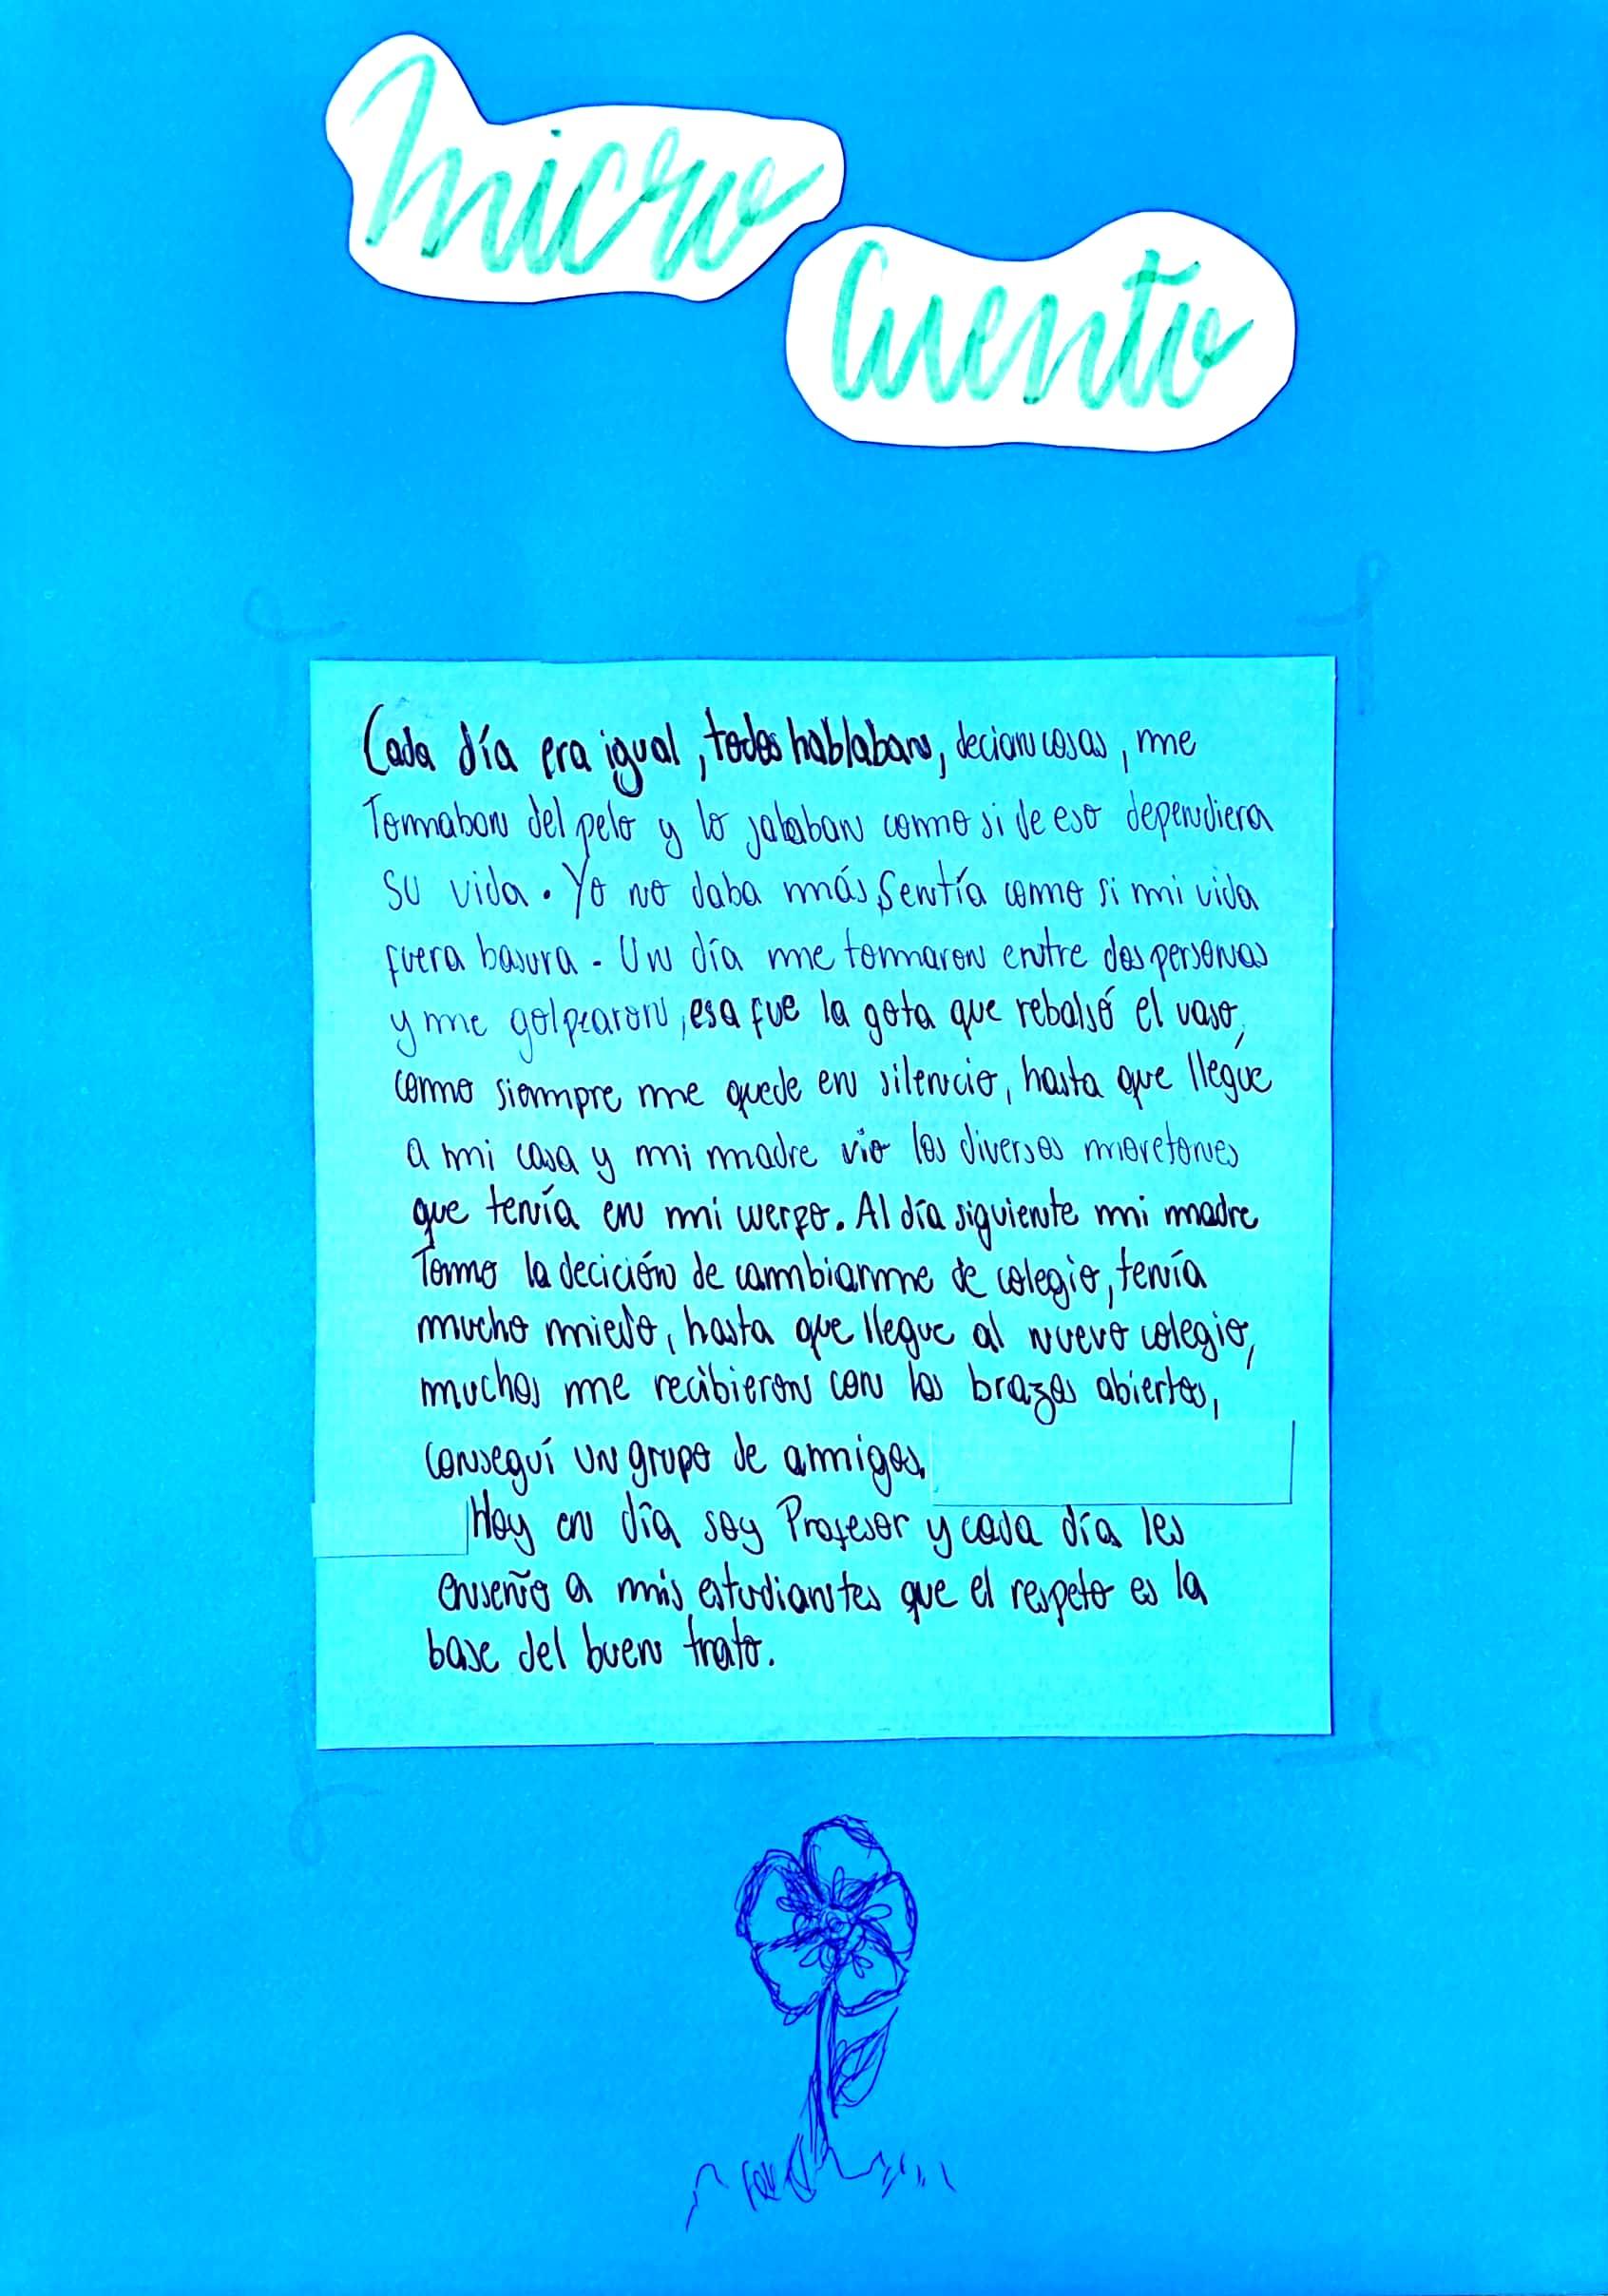 Micro
Cuento
Cada día era igual, todos hablaban, decian cosas, me
Tomaban del pelo y lo jalaban como si de eso dependiera
su vida. Yo no daba más, Sentía como si mi vida
fuera basura. Un día me tomaron entre dos personas
y me golpearon, esa fue la gota que rebalsó el vaso,
como siempre me quede en silencio, hasta que llegue
a mi casa y mi madre vio los diversos moretones
que tenía en mi cuerpo. Al día siguiente mi madre
Tomo la decición de cambiarme de colegio, tenía
mucho miedo, hasta que llegue al nuevo colegio,
muchos me recibieron con los brazos abiertos,
conseguí un grupo de amigos.
Hoy en día soy Profesor y cada día les
enseño a mis estudiantes que el respeto es la
base del buen trato.